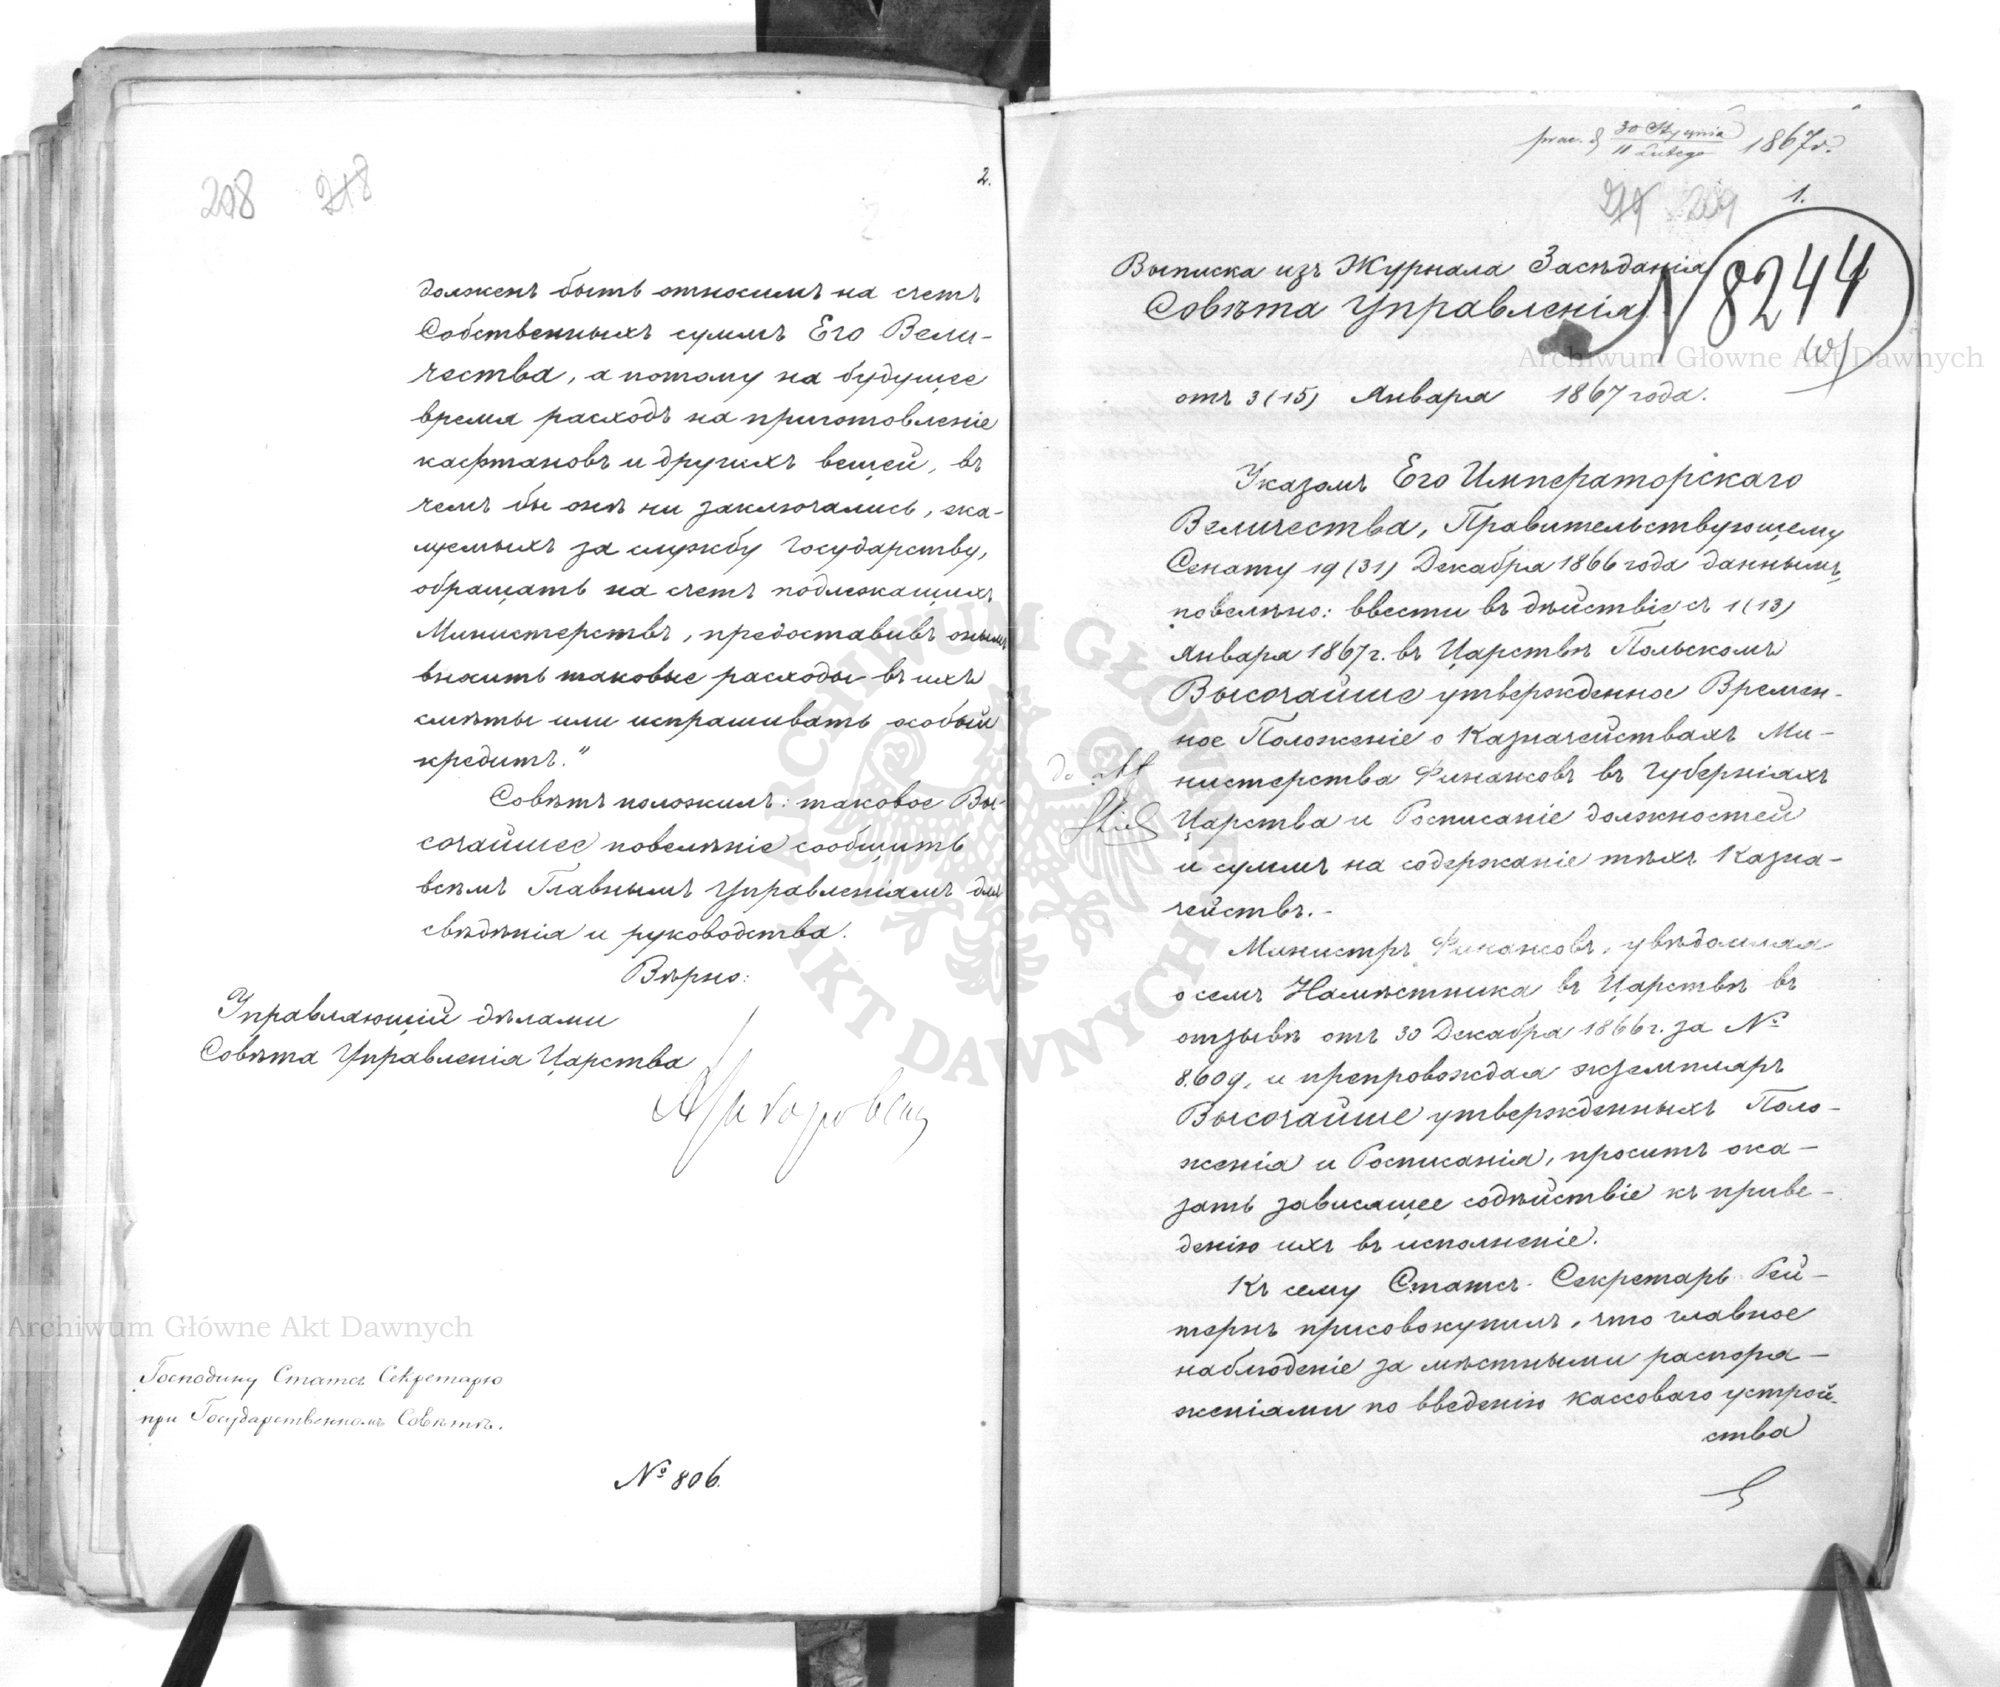 208 218
2.
долженъ быть относимъ на счетъ
Собственныхъ суммъ Его Вели-
чества, а потому на будущее
время расходъ на приготовленіе
кафтановъ и другихъ вещей, въ
чемъ бы онѣ ни заключались, жа-
луемыхъ за службу Государству,
обращать на счетъ подлежащихъ
Министерствъ, предоставивъ онымъ
вносить таковые расходы въ ихъ
смѣты или испрашивать особый
кредитъ."
Совѣтъ положилъ: таковое Вы-
сочайшее повелѣніе сообщить
всѣмъ Главнымъ Управленіямъ для
свѣдѣнія и руководства.
Вѣрно:
Управляющій дѣлами
Совѣта Управленія Царства
Господину Статсъ Секретарю
при Государственномъ Совѣтѣ.
№ 806.
30 Stycznia
11 Lutego 1867 r.
219 209
1.
Выписка изъ Журнала Засѣданія
Совѣта Управленія
N 8244
отъ 3 (15) Января 1867 года.
Указомъ Его Императорскаго
Величества, Правительствующему
Сенату 19 (31) Декабря 1866 года даннымъ,
повелѣно: ввести въ дѣйствіе съ 1 (13)
Января 1867 г. въ Царствѣ Польскомъ
Высочайше утвержденное Времен-
ное Положеніе о Казначействахъ Ми-
нистерства Финансовъ въ Губерніяхъ
Царства и Росписаніе должностей
и суммъ на содержаніе тѣхъ Казна-
чействъ.-
do akt
Министръ Финансовъ, увѣдомляя
о семъ Намѣстника въ Царствѣ въ
отзывѣ отъ 30 Декабря 1866 г. за №
8.609, и препровождая экземпляръ
Высочайше утвержденныхъ Поло-
женія и Росписанія, проситъ ока-
зать зависящее содѣйствіе къ приве-
денію ихъ въ исполненіе.
Къ сему Статсъ-Секретарь Рей-
тернъ присовокупилъ, что главное
наблюденіе за мѣстными распоря-
женіями по введенію кассоваго устрой-
ства
Archiwum Główne Akt Dawnych
Archiwum Główne Akt Dawnych
ARCHIWUM GŁÓWNE AKT DAWNYCH